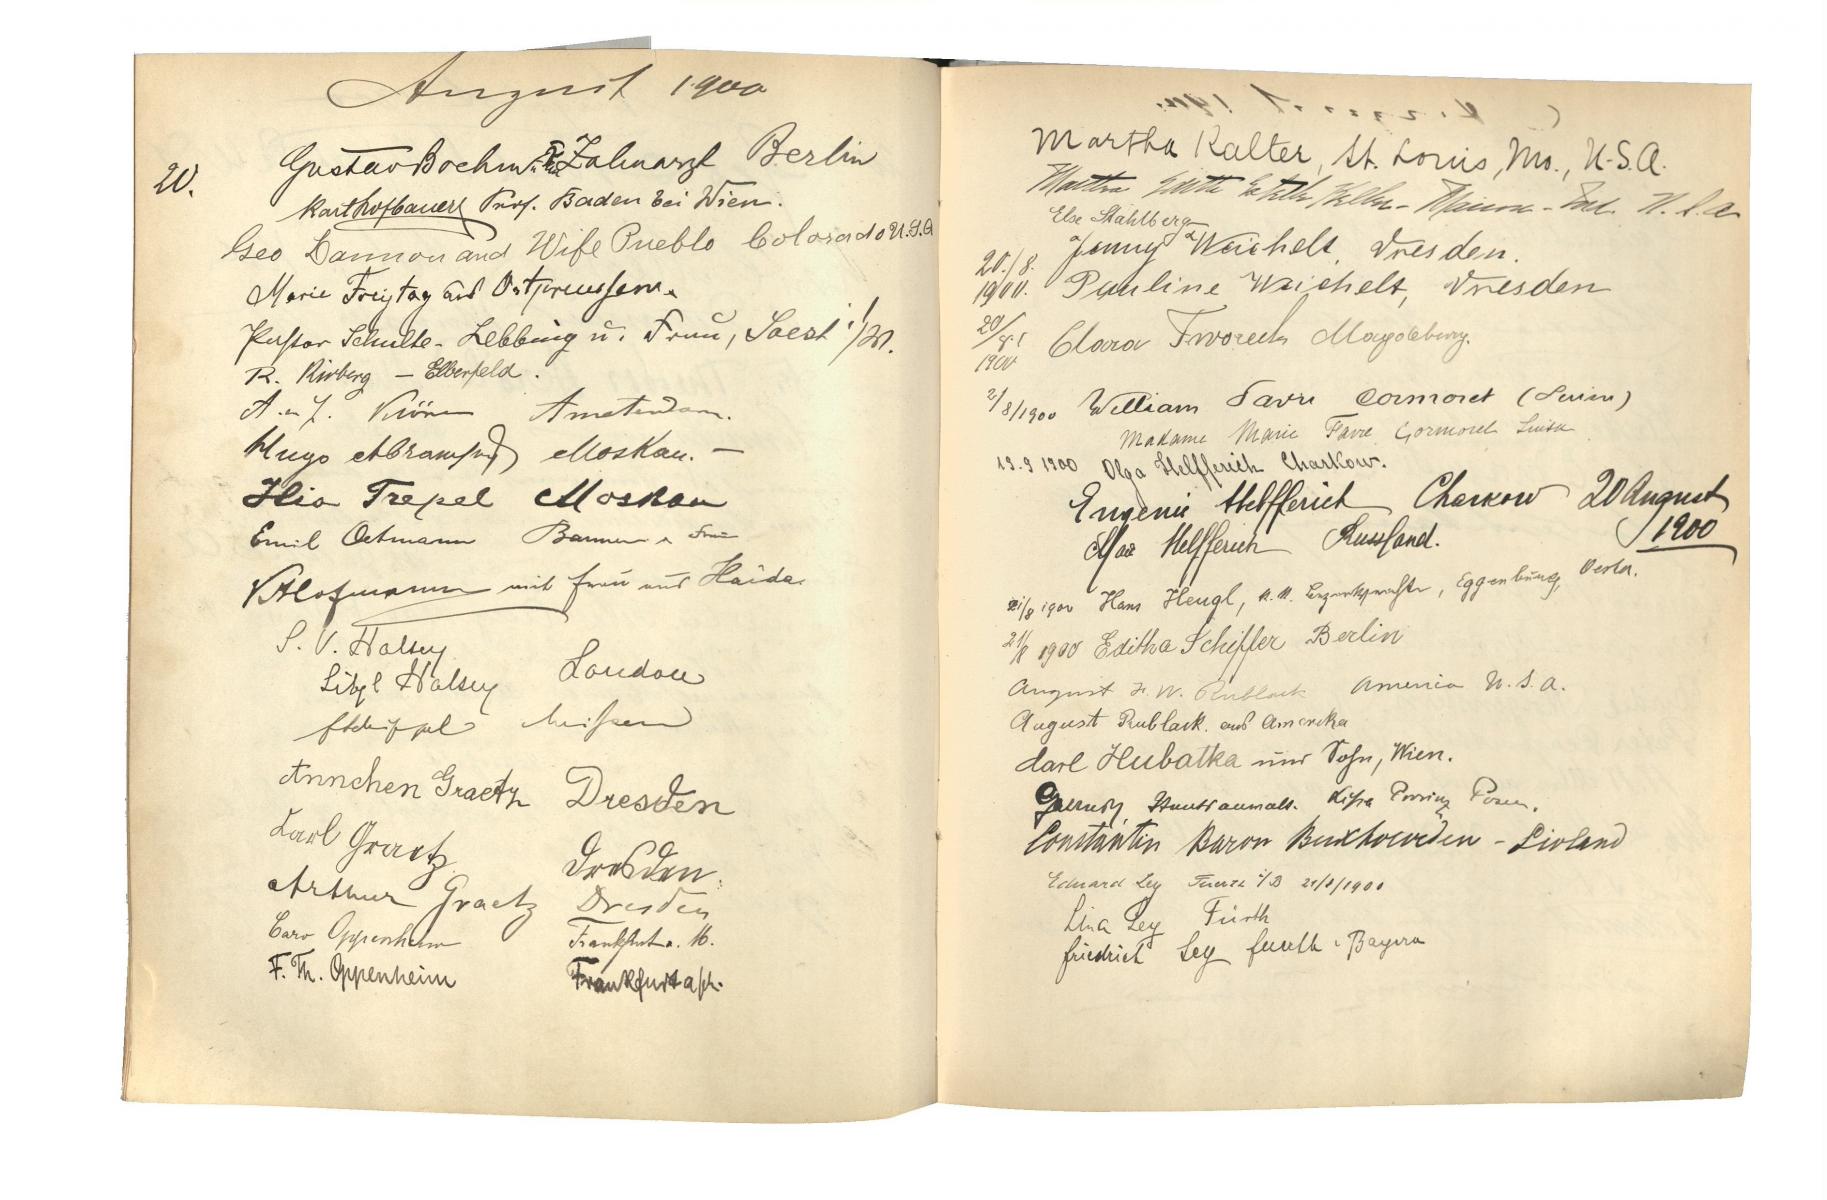 August 1900
20.
Gustav Boehm Zahnarzt Berlin
Karl Hofbauer Prof. Baden bei Wien.
Geo Dannon and Wife Pueblo Colorado U.S.A
Marie Freytag aus Ostpreussen.
Pastor Schulte-Lebbing u. Frau, Soest i/W.
R. Rirberg - Elberfeld.
A. u. J. Amsterdam.
Hugo Moskau. -
Ilia Trepel Moskau
Emil Oetmann Barmen u Frau
Hofmann mit Frau aus Haida.
S. V. Halsey
Sibyl Halsey London
Meissen
Annchen Graetz Dresden
Karl Graetz Dresden.
Arthur Graetz Dresden
Caro Oppenheim Frankfurt a. M.
F. Th. Oppenheim Frankfurt a/M.
Martha Kalter, St. Louis, Mo., U.S.A.
Martha U.S.A
Else Stahlberg
20./8. 1900. Jenny Weichelt, Dresden.
Pauline Weichelt, Dresden
20/8 1900 Clara Tworeck Magdeburg.
2/8/1900 William Favre Cormoret (Suisse)
Madame Marie Favre Cormoret Suisse
19.9 1900 Olga Helfferich Charkow.
Eugenie Helfferich Charkow 20 August
1900
Max Helfferich Russland.
21/8 1900 Hans Hengl, K. K. Eggenburg, Oester.
21/8 1900 Editha Schiffer Berlin
August F. W. Rublack America U.S.A.
August Rublack. aus Amerika
Carl Hubatka und Sohn, Wien.
Staatsanwalt. Lissa Provinz Posen.
Constantin Baron Buxhoewden - Livland
Eduard Ley Fuerth i/B 21/8/1900
Lina Ley Fürth
Friedrich Ley Fuerth i Bayern